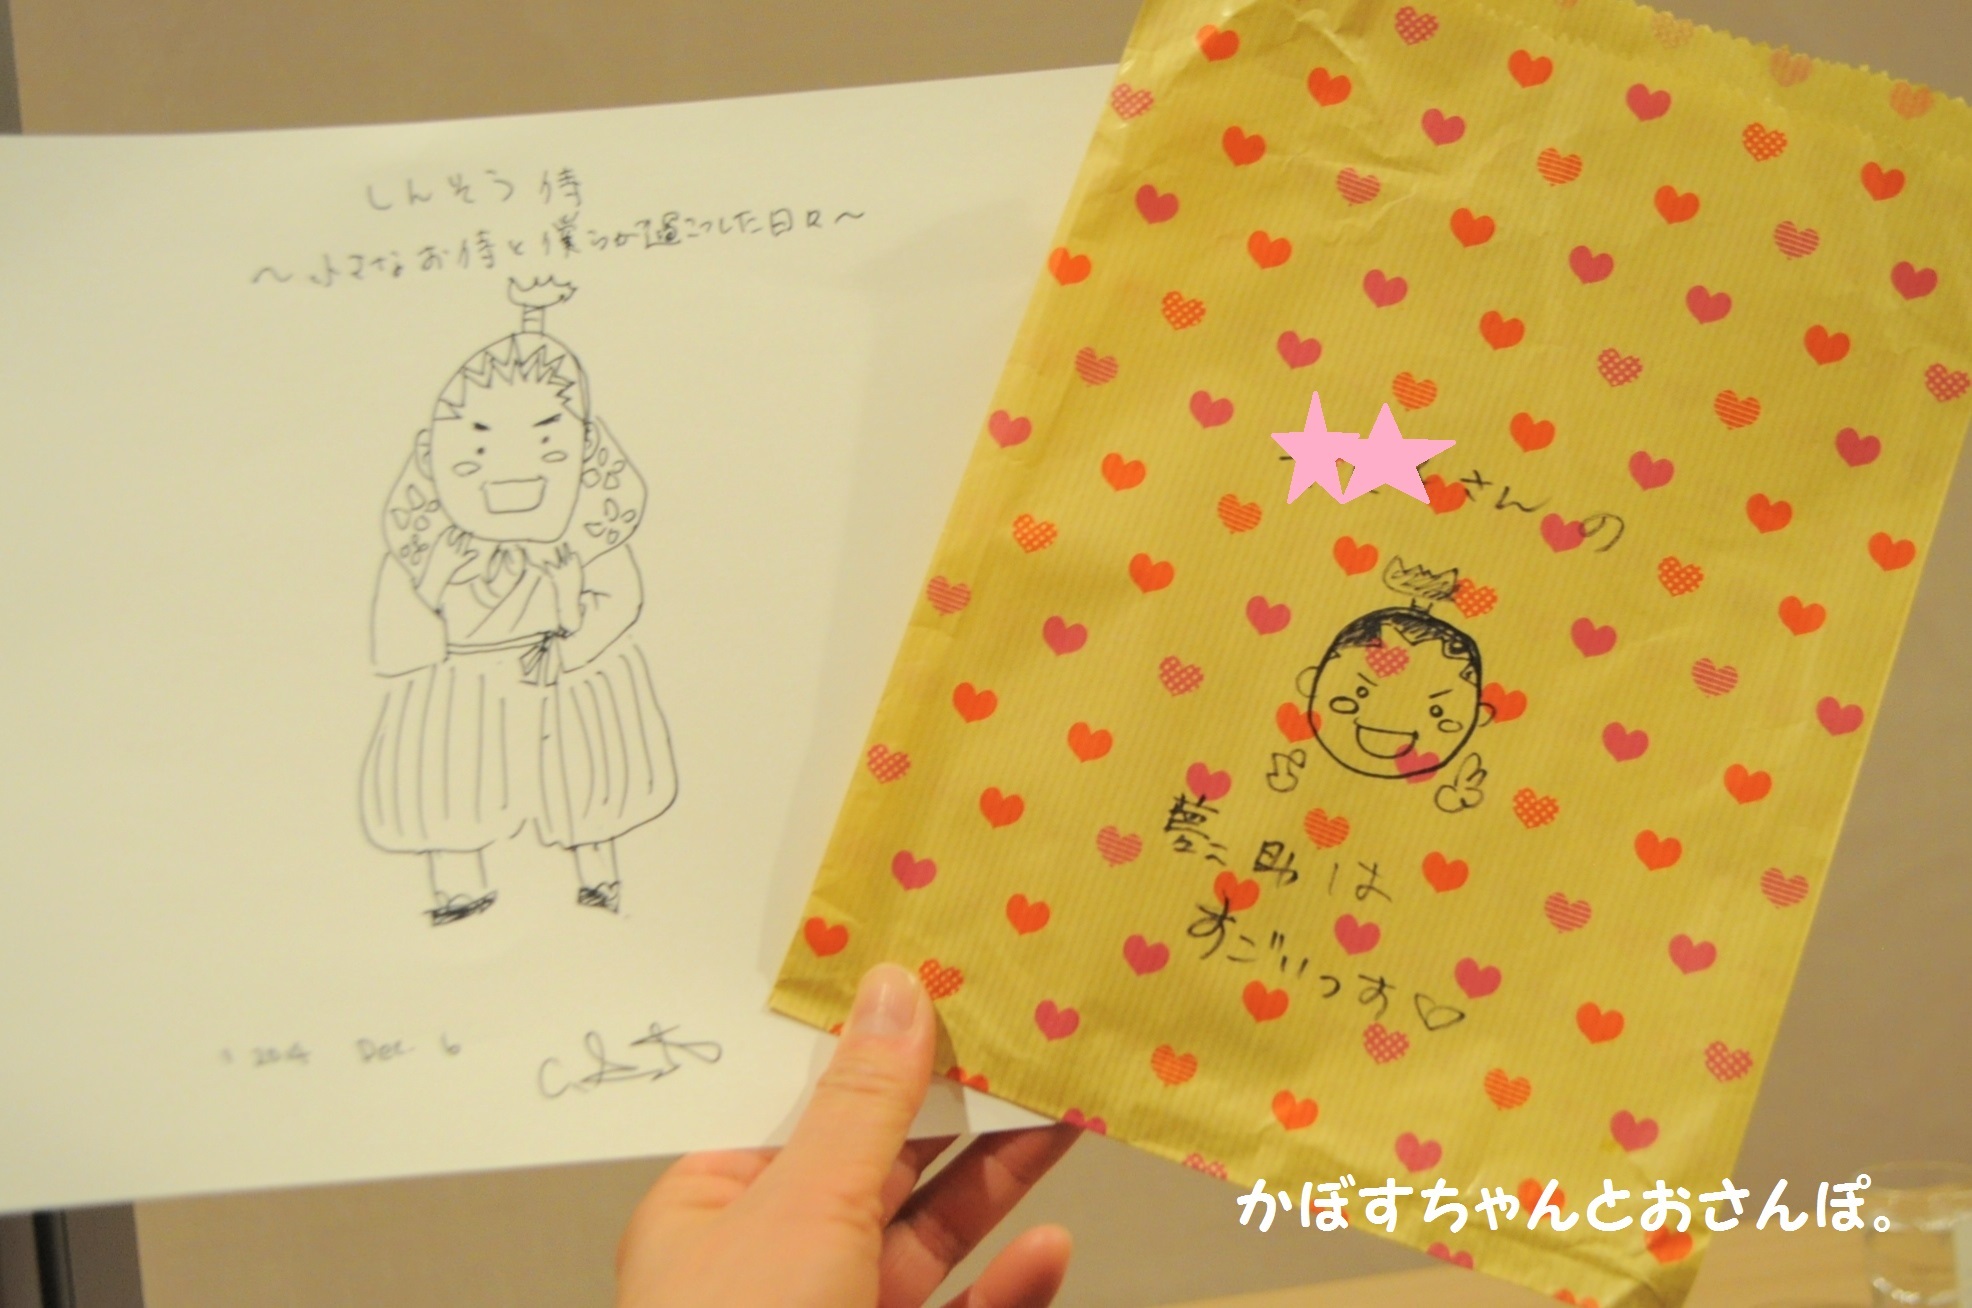 しんそう侍
～小さなお侍と僕らが過ごした日々～
2014 Dec 6
さんの
夢助は
すごいっす♡
かぼすちゃんとおさんぽ。